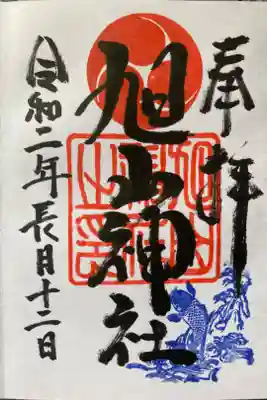 奉拝
旭山神社
令和二年長月十二日